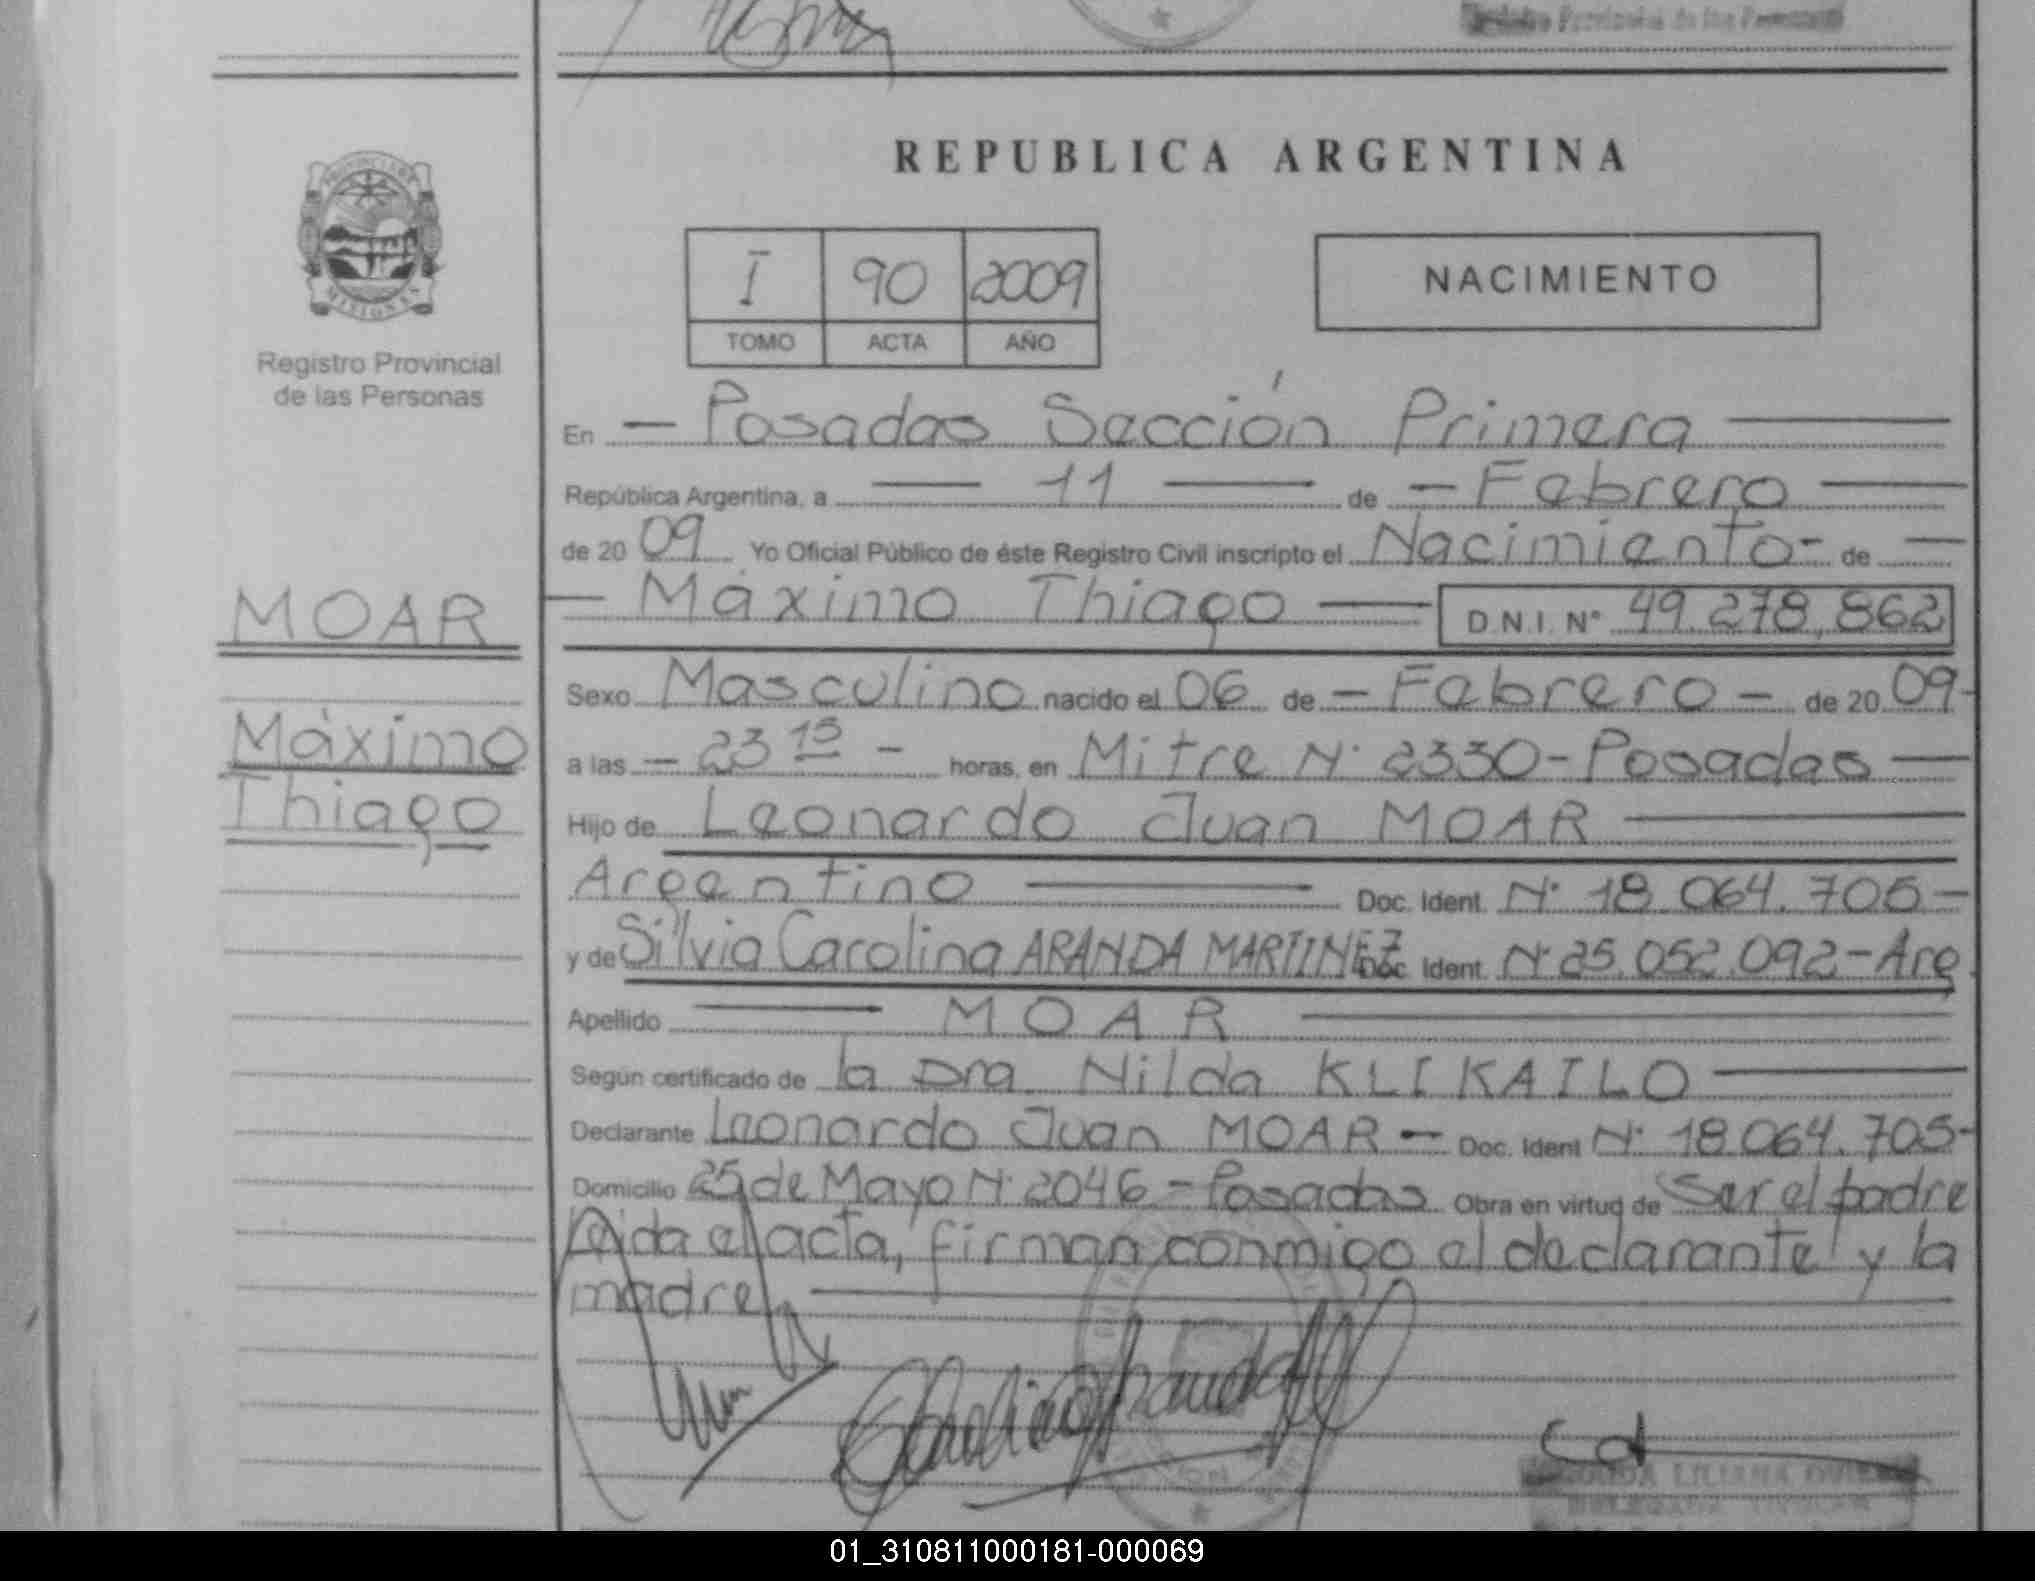 REPUBLICA ARGENTINA
PROVINCIA DE
MISIONES
Registro Provincial
de las Personas
I 90 2009
TOMO ACTA AÑO
NACIMIENTO
En - Posadas Sección Primera
República Argentina, a 11 de - Febrero
de 20 09 Yo Oficial Público de éste Registro Civil inscripto el Nacimiento - de
MOAR
Máximo Thiago D.N.I. Nº 49.278.862
Sexo Masculino nacido el 06 de - Febrero - de 20 09-
Máximo
Thiago
a las - 23 15 - horas, en Mitre Nº 2330 - Posadas
Hijo de Leonardo Juan MOAR
Argentino Doc. Ident. Nº 18.064.705-
y de Silvia Carolina ARANDA MARTINEZ Doc. Ident. Nº 25.052.092-Arg
Apellido MOAR
Según certificado de la Dra Nilda KLIKAILO
Declarante Leonardo Juan MOAR - Doc. Ident Nº 18.064.705-
Domicilio 25 de Mayo Nº 2046 - Posadas Obra en virtud de Ser el padre
Leida el acta, firman conmigo el declarante y la
madre
LILIANA
01_310811000181-000069